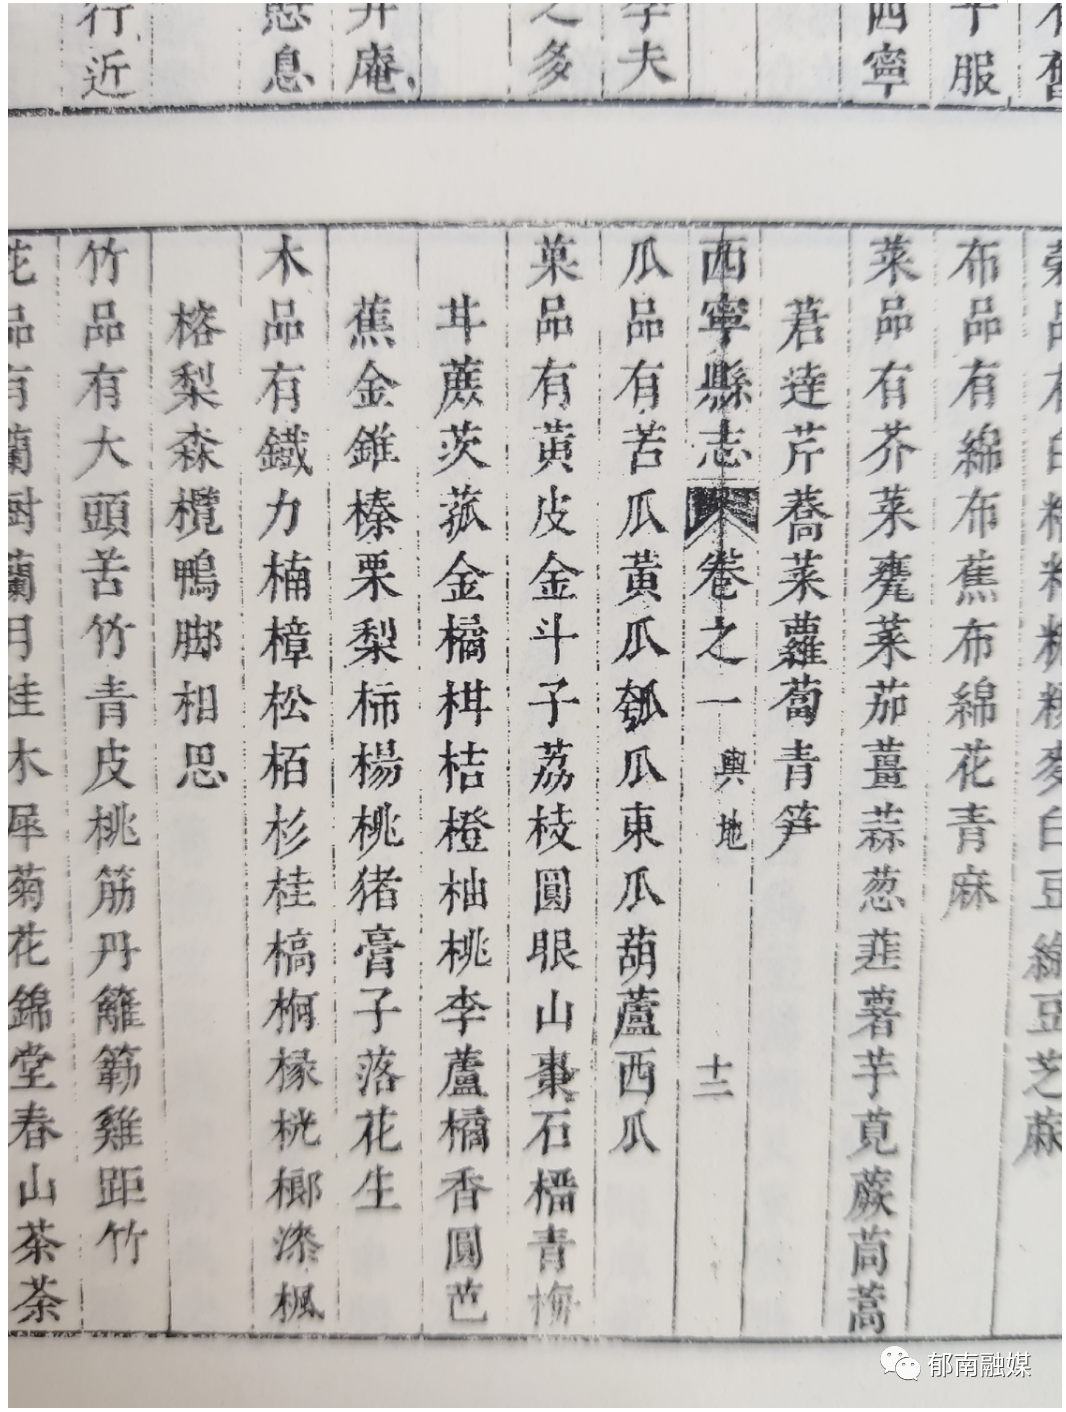 有舊
于服
西寧
李夫
之多
井庵
息
行近
品有白豆綠豆芝蔴
布品有綿布蕉布綿花青麻
菜品有芥菜甕菜茄薑蒜葱薤薯芋莧蕨茼蒿
莙達芹蕎菜蘿蔔青笋
西寧縣志 卷之一 輿地 十二
瓜品有苦瓜黃瓜瓠瓜東瓜葫蘆西瓜
菓品有黃皮金斗子荔枝圓眼山棗石榴青梅
甘蔗茨菰金橘柑桔橙柚桃李蘆橘香圓芭
蕉金錐榛栗梨柿楊桃猪膏子落花生
木品有鐵力楠樟松栢杉桂槁桐椽桄榔漆楓
榕梨森欖鴨脚相思
竹品有大頭苦竹青皮桃筋丹籬簕雞距竹
花品有蘭樹蘭月桂木犀菊花錦堂春山茶茶
郁南融媒